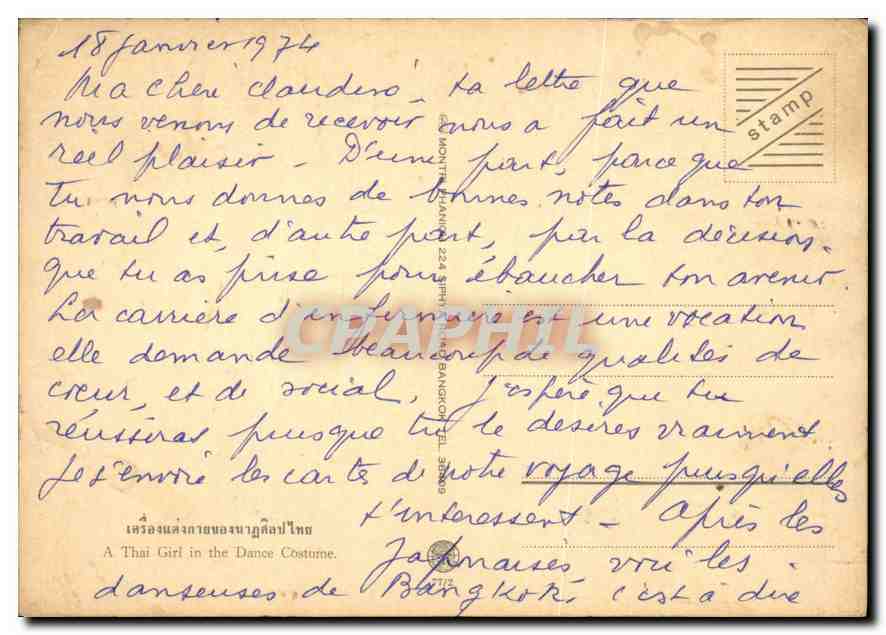 18 janvier 1974
Ma chère Claudine, ta lettre que
nous venons de recevoir nous a fait un
réel plaisir - D'une part, parce que
tu nous donnes de bonnes notes dans ton
travail et, d'autre part, par la décision
que tu as prise pour ébaucher ton avenir.
La carrière d'infirmière est une vocation
elle demande beaucoup de qualités de
coeur, et de social. J'espère que tu
réussiras puisque tu le désires vraiment
Je t'envoie les cartes de notre voyage puisqu'elles
t'intéressent - Après les
Japonaises voici les
danseuses de Bangkok, c'est à dire
stamp
เครื่องแต่งกายของนาฏศิลปไทย
A Thai Girl in the Dance Costume.
224 BANGKOK TEL.
77/2
CPAPHIL